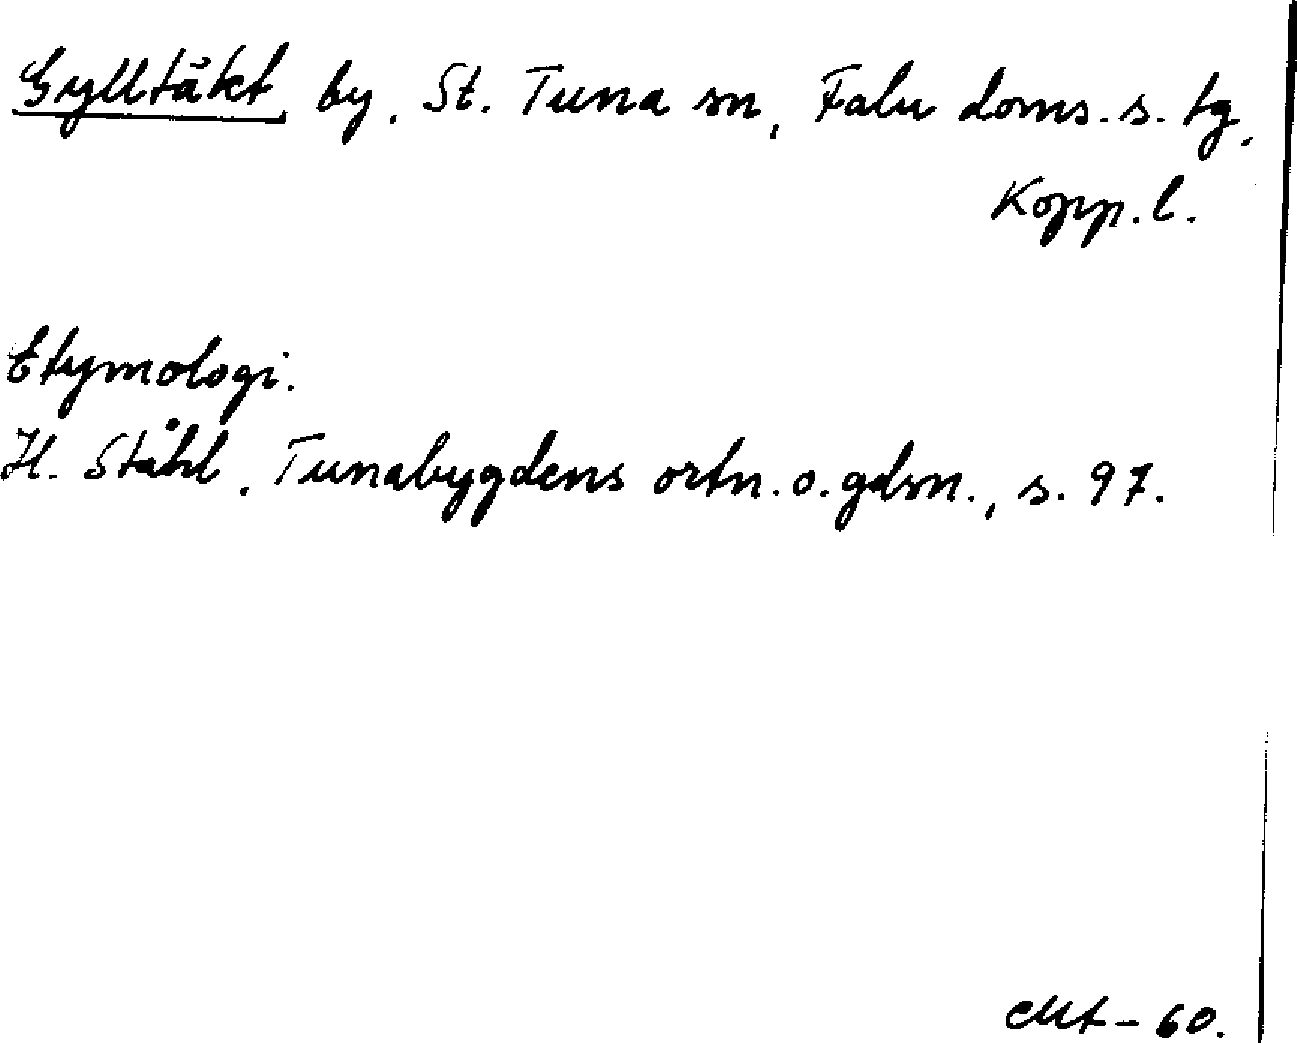 Gylltäkt, by, St. Tuna sn, Falu doms. s. tg,
Kopp. l.
Etymologi.
H. Ståhl, Tunabygdens ortn. o. gdsn., s. 97.
60.